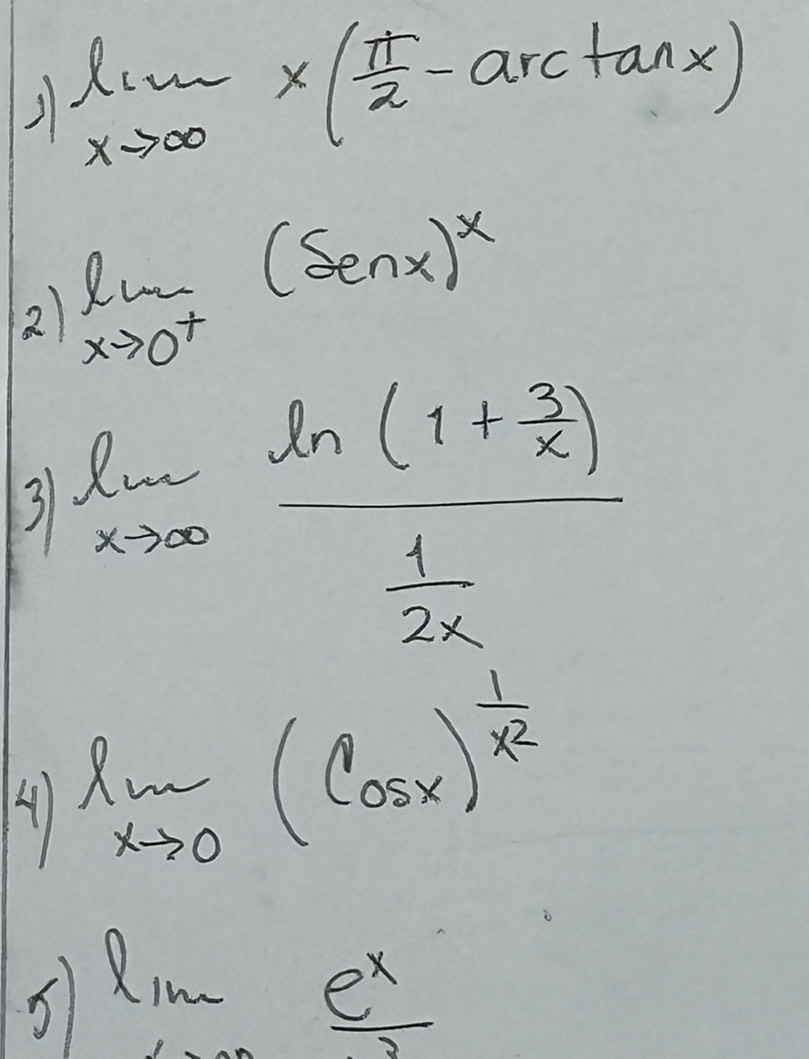 1) lim x→∞ x(π/2 - arctanx)
2) lim x→0⁺ (Senx)^x
3) lim x→∞ ln(1 + 3/x) / (1/2x)
4) lim x→0 (Cosx)^(1/x²)
5) lim e^x